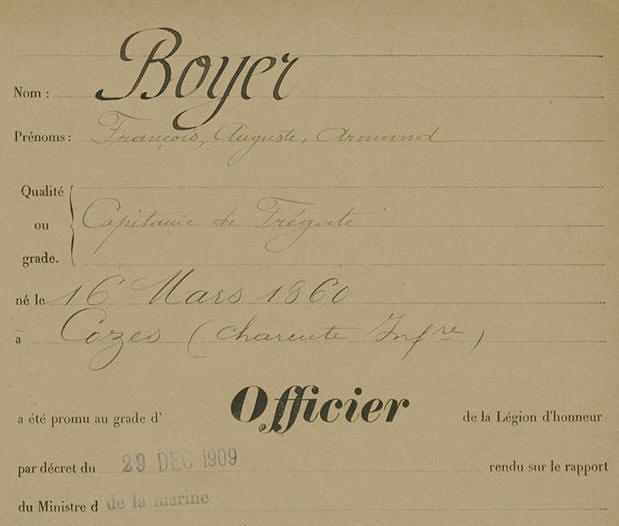 Nom : Boyer
Prénoms : François, Auguste, Armand
Qualité
ou Capitaine de Frégate
grade.
né le 16 Mars 1860
à Cozes (Charente Infre)
a été promu au grade d' Officier de la Légion d'honneur
par décret du 29 DEC 1909 rendu sur le rapport
du Ministre d de la marine